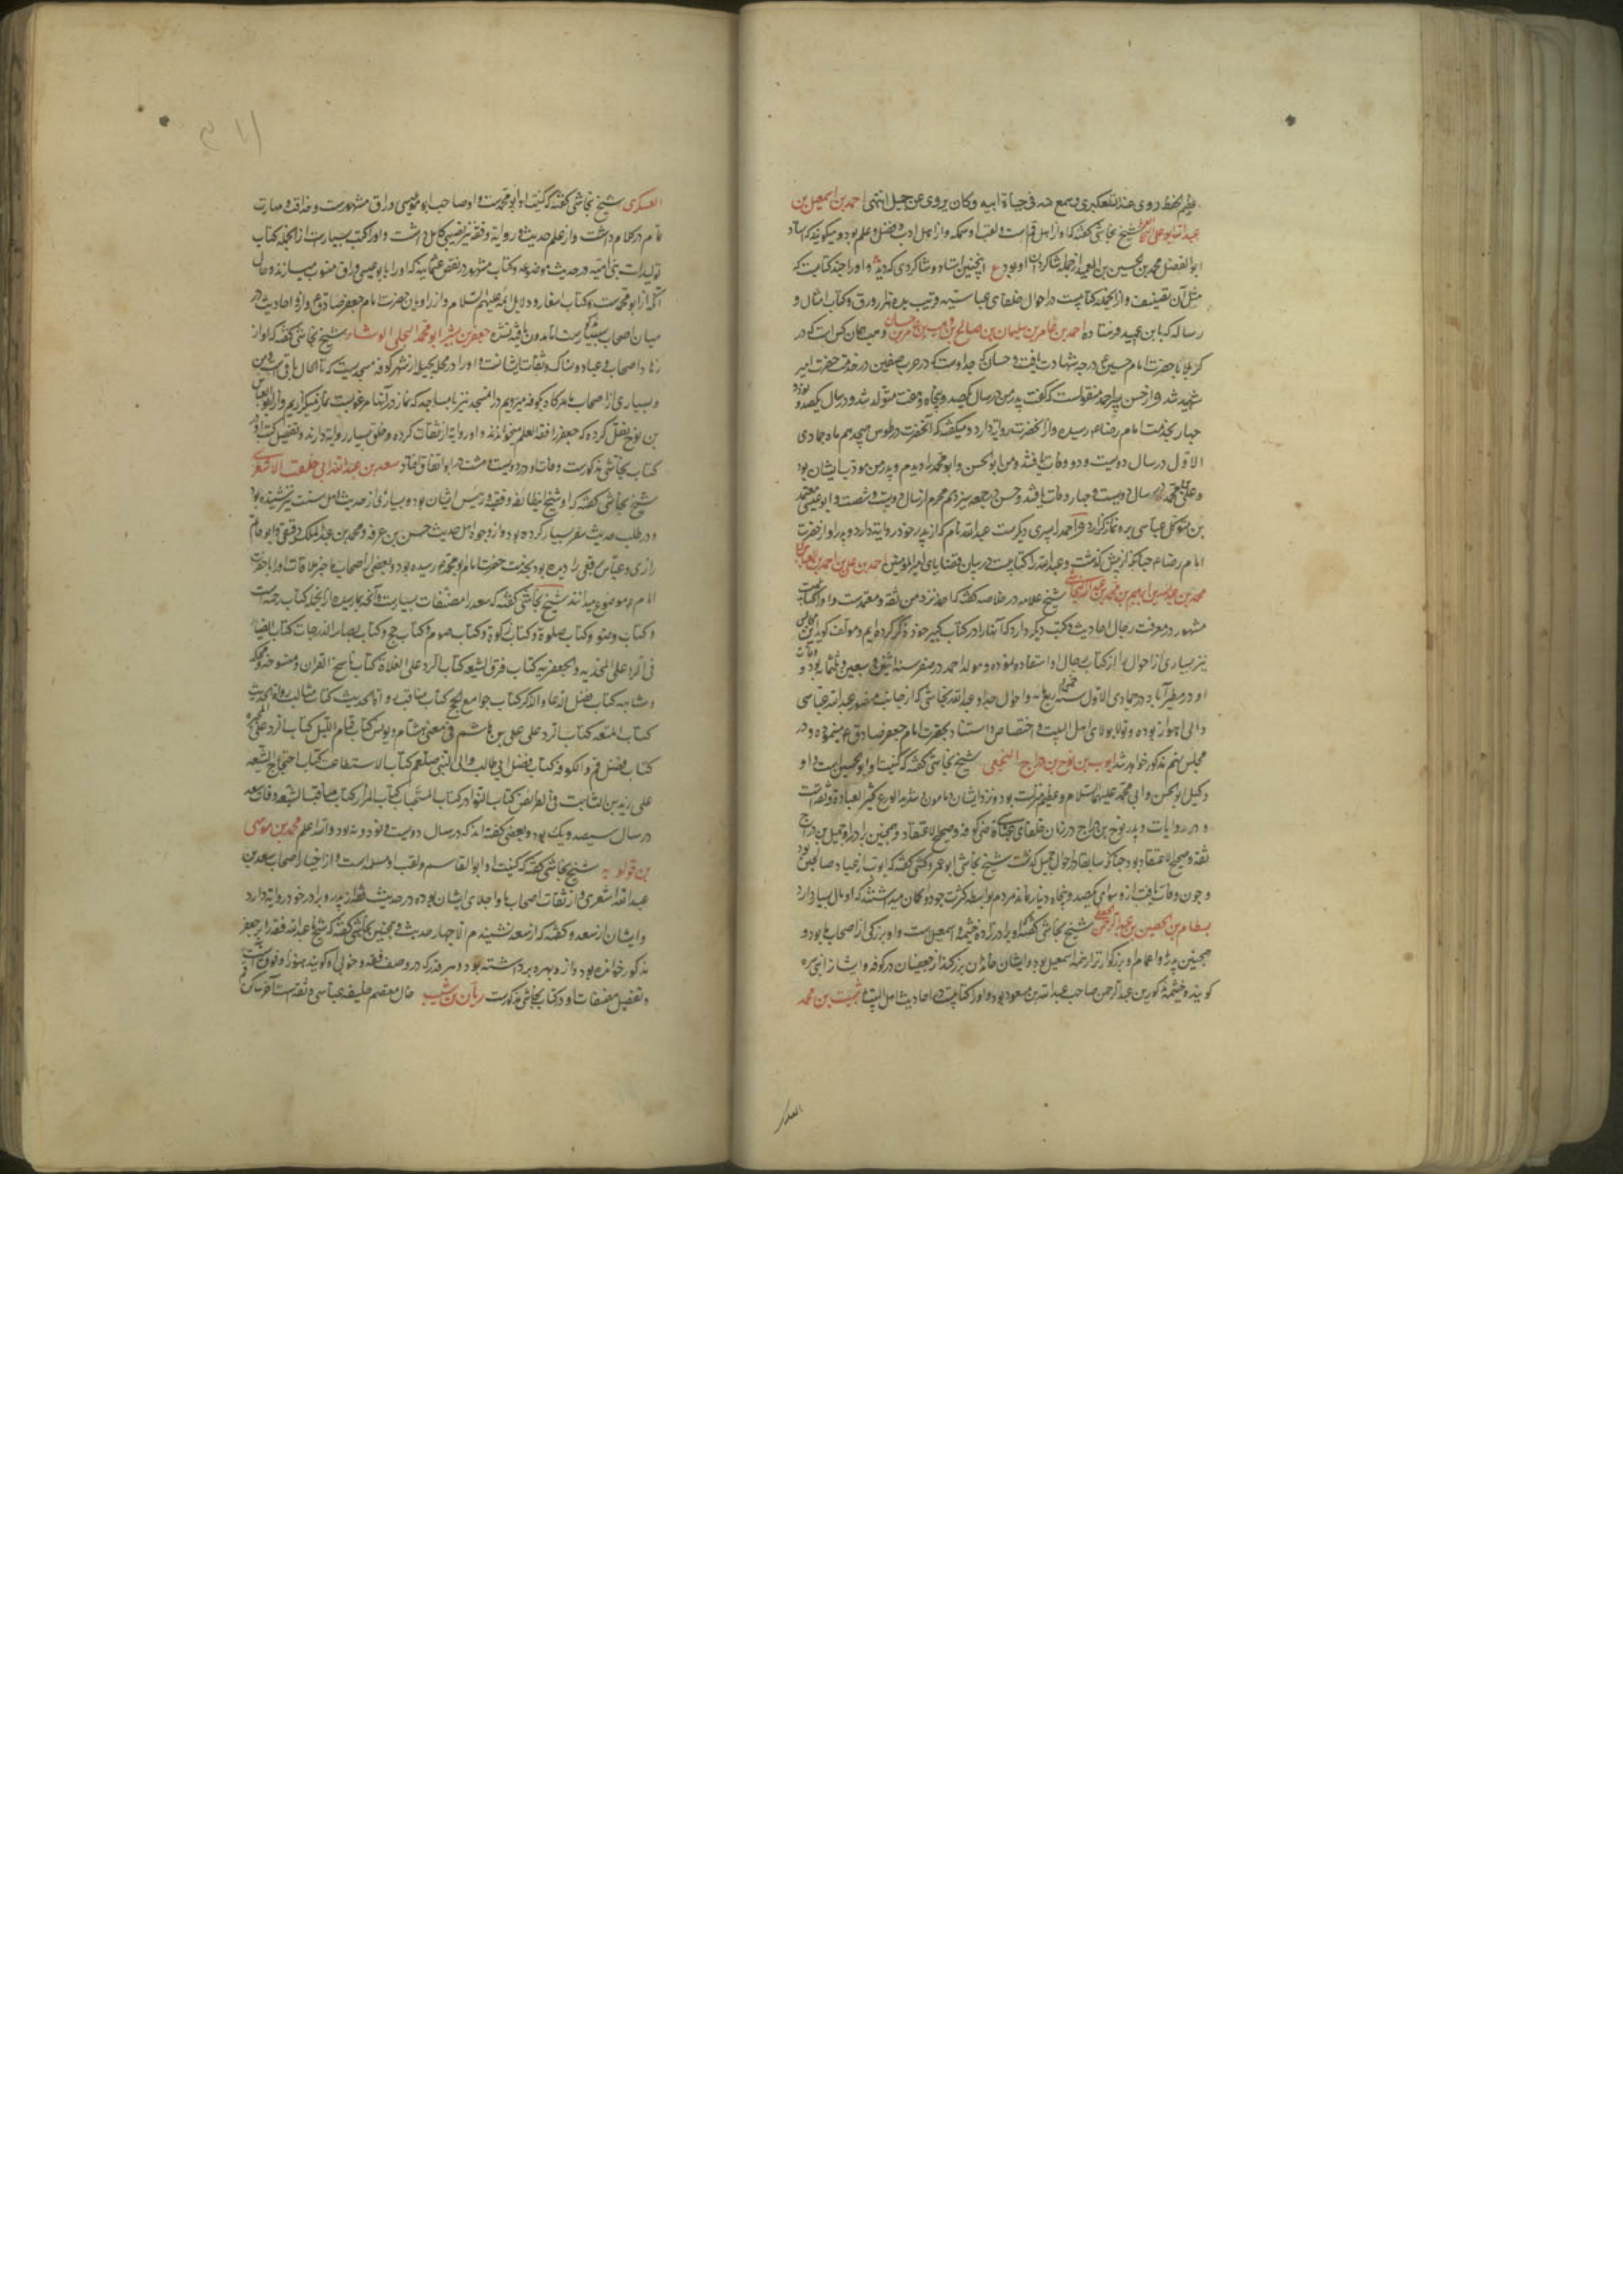 عظیم الحفظ روی عنه التلعکبری و سمع منه فی حیاة ابیه و کان یروی عن جبل انتهی احمد بن اسمعیل بن
عبد الله ابو علی شیخ نجاشی کفته که او از اهل قم است و لقب او سمکه و از اهل ادب و فضل و علم بود و میکویند که استاد
ابو الفضل محمد بن الحسین بن العمید از جمله شاکردان او بود ع اینچنین استاد و شاکردی که دید و او را چند کتابست که
مثل آن تصنیف و از انجمله کتابیست در احوال خلفای عباسیه قریب بده هزار ورق و کتاب امثال و
رساله که بابن عمید فرستاده احمد بن عامر بن سلیمان بن صالح بن وهب بن عامر بن حسان و وهب همان کس است که در
کربلا با حضرت امام حسین ع درجه شهادت یافت و حسان که جد اوست که در حرب صفین در خدمت حضرت امیر
شهید شد و از حسن پسر احمد منقولست که کفت پدر من در سال یکصد و پنجاه و هفت متولد شد و در سال یکصد و نود و
چهار بخدمت امام رضا ع رسیده و از آنحضرت روایة دارد و میکفته که آنحضرت در طوس هیجدهم ماه جمادی
الاول در سال دویست و دو وفات یافته و من ابو الحسن و ابو محمد را دیدم و پدر من موذن ایشان بود
و علی در سال دویست و چهار وفات یافته و حسن در جمعه سیزدهم محرم از سال دویست و شصت و ابو عیسی
بن متوکل عباسی برو نماز کزارد و احمد را پسری دیکرست عبد الله نام که از پدر خود روایة دارد و پدر او از حضرت
امام رضا ع چنانکه از پیش کذشت و عبد الله را کتابیست در بیان قضایای امیر المومنین احمد بن علی بن احمد بن العباس
محمد بن عبد الله بن ابراهیم بن محمد بن عبد الله النجاشی شیخ علامه در خلاصه کفته که احمد نزد من ثقه و معتمدست و او را کتابیست
مشهور در معرفت رجال احادیث و کتب دیکر دارد که آنها را در کتاب کبیر خود ذکر کرده ایم و مولف کوید این مجالس
نیز بسیاری از احوال را از کتاب رجال او استفاده نموده و مولد احمد در صفر سنه اثنتین و سبعین و ثلثمائه بود و وفات
او در مطیرآباد در جمادی الاول سنه خمسین و اربعمائه و احوال جد او عبد الله نجاشی که از جانب منصور عبد الله عباسی
والی اهواز بوده و تولا بولای اهل البیت و اختصاص و استناد بحضرت امام جعفر صادق ع مینموده در
مجلس پنجم مذکور خواهد شد ایوب بن نوح بن دراج النخعی شیخ نجاشی کفته که کنیت او ابو الحسین است و او
وکیل ابو الحسن و ابی محمد علیهما السلام و عظیم منزلت بود نزد ایشان و مامون و شدید الورع کثیر العبادة و ثقه است
در روایات و پدر نوح بن دراج در زمان خلفای عباسیه قاضی کوفه و صحیح الاعتقاد و همچنین برادر او جمیل بن دراج
ثقه و صحیح الاعتقاد بود چنانکه سابقا در احوال جمیل کذشت شیخ نجاشی ابو عمرو کشی کفته که ایوب از عباد صالحین بود
و چون وفات یافت ازو سوای یکصد و پنجاه دینار نماند مردم بواسطه کثرت جود او کمان میداشتند که او مال بسیار دارد
بسطام بن الحصین بن عبد الرحمن الجعفی شیخ نجاشی کفته که او برادر زاده خثیمه و اسمعیل است و او بزرکی از اصحاب ما بود و
همچنین پدر و اعمام و بزرکوارتر از همه اسمعیل بود و ایشان خاندان بزرکند از جعفیان در کوفه و ایشان از ابی سبره
کویند و خیثمه مذکور بن عبد الرحمن صاحب عبد الله بن مسعود بود و او را کتابیست در احادیث اهل البیت ثبیت بن محمد
العسکری
العسکری شیخ نجاشی کفته که کنیت او ابو محمدست و او صاحب ابو عیسی وراق مشهورست و حذاقت و مهارت
تمام در کلام داشت و از علم حدیث و روایة و فقه نیز نصیبی کامل داشت و او را کتب بسیارست از انجمله کتاب
تولیدات بنی امیه در حدیث موضوعه و کتاب مشهور در نقض عثمانیه که او را بابو عیسی وراق منسوب میسازند و حال
آنکه از ابو محمدست و کتاب اسفار و دلایل ائمه علیهم السلام و از راویان حضرت امام جعفر صادق ع و ازو احادیث در
میان اصحاب بسیارست اما مدون یافته نشده جعفر بن بشیر ابو محمد البجلی الوشاء شیخ نجاشی کفته که او از
زهاد اصحاب و عباد و نساک و ثقات ایشانست و او را در محله بجیله از شهر کوفه مسجدیست که تا الحال باقی است و من
و بسیاری از اصحاب ما هرکاه بکوفه میرویم در انمسجد نیز با مساجد که نماز در آنها مرغوبیست نماز میکزاریم و از ابو العباس
بن نوح نقل کرده که جعفر را فقه العلم میخواندند و او روایة از ثقات کرده و خلق بسیار روایة دارند و تفضیل کتب او در
کتاب نجاشی مذکورست و وفات او در دویست و هشت در ابواء اتفاق افتاد سعد بن عبد الله ابی خلف الاشعری
شیخ نجاشی کفته که او شیخ این طائفه و فقیه و رئیس ایشان بود و بسیاری از حدیث اهل سنت نیز شنیده بود
و در طلب حدیث سفر بسیار کرده بود و از وجوه اهل حدیث حسن بن عرفه و محمد بن عبد الملک دقیقی و ابو حاتم
رازی و عباس ترقفی را دیده بود بخدمت حضرت امام ابو محمد ع رسیده بود و بعضی اصحاب ما خبر ملاقات او را با حضرت
امام ع موضوع میدانند شیخ نجاشی کفته که سعد را مصنفات بسیارست و آنچه بما رسیده از انجمله کتاب رحمه است
و کتاب وضو و کتاب صلوة و کتاب زکوة و کتاب صوم و کتاب حج و کتاب بصایر الدرجات کتاب الضیاء
فی الرد علی المحمدیه و الجعفریه کتاب فرق الشیعه کتاب الرد علی الغلاة کتاب ناسخ القران و منسوخه و محکمه
و متشابهه کتاب فضل الدعاء و الذکر کتاب جوامع الحج کتاب مناقب رواة الحدیث کتاب مثالب رواة الحدیث
کتاب المتعه کتاب الرد علی علی بن ابراهیم بن هاشم فی معنی هشام و یونس کتاب قیام اللیل کتاب الرد علی المجبره
کتاب فضل قم و الکوفه کتاب فضل ابی طالب و ابی النبی صلعم کتاب الاستطاعت کتاب احتجاج الشیعه
علی زید بن الثابت فی الفرائض کتاب النوادر کتاب المنتخبات کتاب المزار کتاب مناقب الشیعه وفات سعد
در سال سیصد و یک بود و بعضی کفته اند که در سال دویست و نود و نه بود و الله اعلم محمد بن موسی
بن قولویه شیخ نجاشی کفته که کنیت او ابو القاسم و لقب او مسلمه است و از اخیار اصحاب سعد بن
عبد الله اشعری و از ثقات اصحاب ما و اجلای ایشان بوده در حدیث و فقه از پدر و برادر خود روایة دارد
و ایشان از سعد و کفته که از سعد نشنیدم الا چهار حدیث و همچنین نجاشی کفته که شیخ ما ابو عبد الله فقه را بر جعفر
مذکور خوانده بود و ازو بهره برداشته بود و هر قدر که در وصف فقه و خوبی او کویند هنوز او فوق آنست
و تفصیل مصنفات او در کتاب نجاشی مذکورست ریان بن شبیب خال معتصم خلیفه عباسی و ثقه است آخر ساکن قم